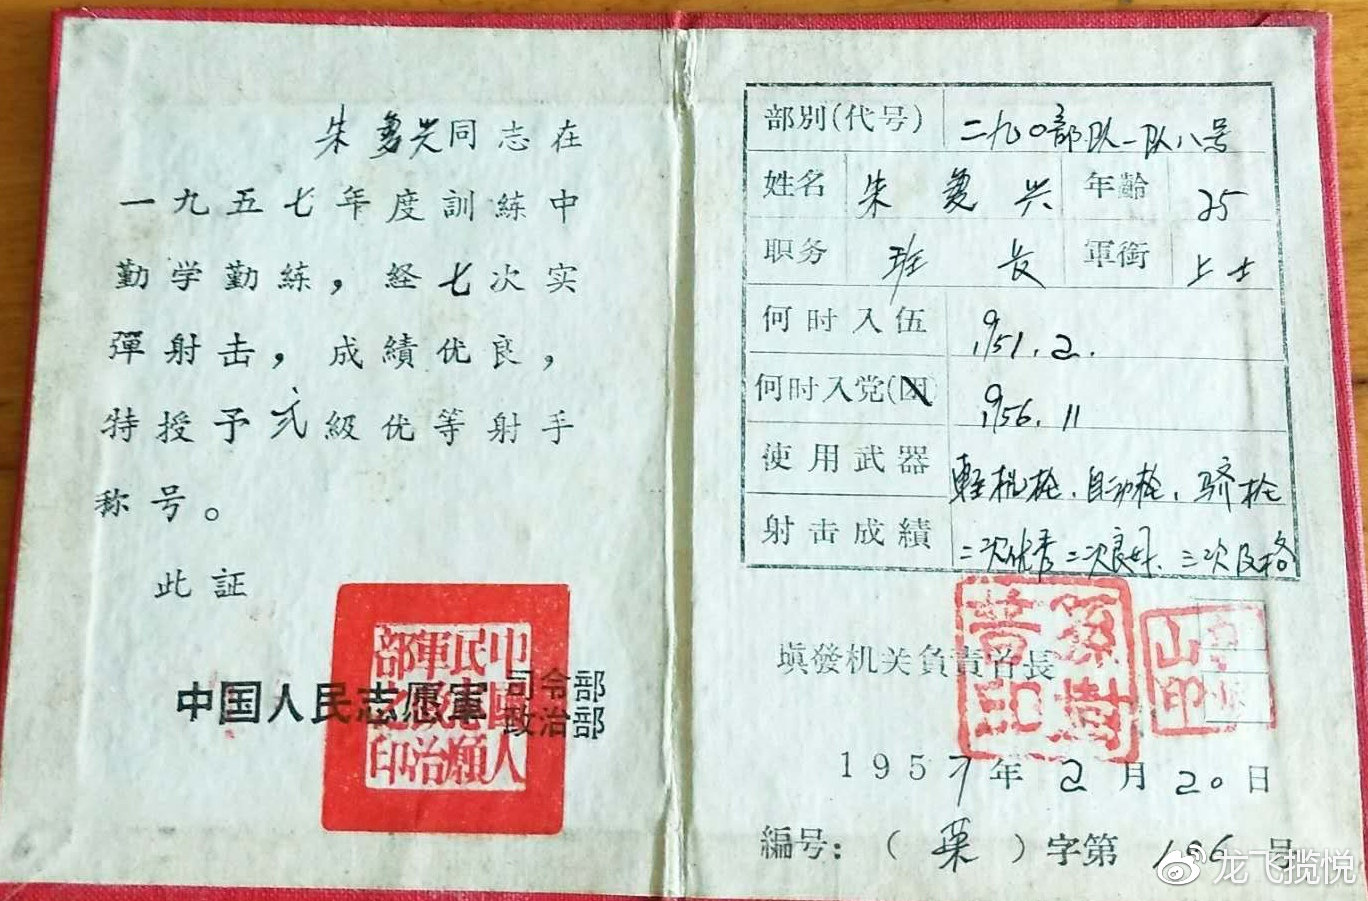 朱夐兴同志在
一九五七年度訓練中
勤学勤練，経七次实
彈射击，成績优良，
特授予弍級优等射手
称号。
此証
中国人民志愿軍司令部
政治部
中國人民志願軍政治部之印
部別(代号) 二九〇部队一队八号
姓名 朱夐兴 年齡 25
职务 班长 軍銜 上士
何时入伍 1951.2.
何时入党(团) 1956.11
使用武器 轻机枪、自动枪、骄枪
射击成績 二次优秀二次良好、三次及格
填發机关負責首長
孫樹 印
山印
1957年2月20日
編号：（荣）字第 号
龙飞揽悦